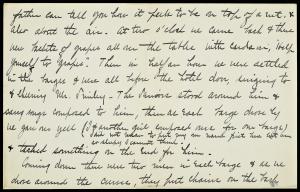 father can tell you how it feels to be on top of a mt. &
also above the air. At two o'clock we came back & there
were baskets of grapes all over the table with cards on, "Help
yourself to grapes." Then in half an hour we were settled
in the barges & were all before the hotel door, singing to
& cheering Mr. The Seniors stood around him &
sang songs composed to him, then as each barge drove by
we gave our yell (I & another girl composed one for our barge)
& tacked something on the end for him.
Coming down there were two men in each barge & as we
drove around the curves, they put chains on the back